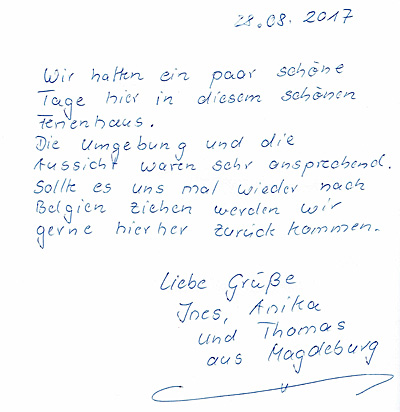 28.08.2017
Wir hatten ein paar schöne
Tage hier in diesem schönen
Ferienhaus.
Die Umgebung und die
Aussicht waren sehr ansprechend.
Sollte es uns mal wieder nach
Belgien ziehen werden wir
gerne hierher zurück kommen.
Liebe Grüße
Ines, Anika
und Thomas
aus Magdeburg